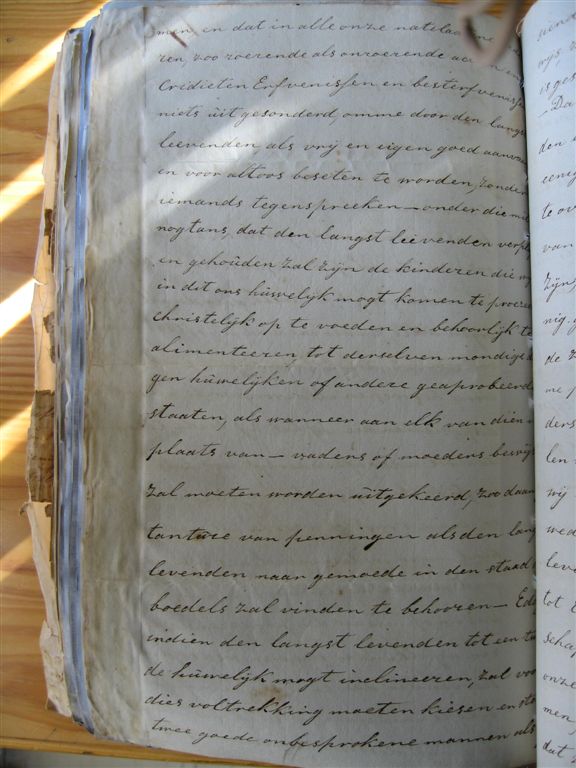 men, en dat in alle onze natelaa
ren, zoo roerende als onroerende
Credieten Erfvenissen en besterfveniss
niets uitgesonderd, omme door den langst
leevenden als vrij en eigen goed aanva
en voor altoos beseten te worden, zonder
iemands tegenspreeken — onder die mi
nogtans, dat den langst leevenden verpl
en gehouden zal zijn de kinderen die wy
in dit ons huwelyk mogt komen te procre
christelijk op te voeden en behoorlijk te
alimenteeren, tot derselven mondige
gen huwelijken of andere geaprobeerd
staaten, als wanneer aan elk van dien
plaats van — vaders of moeders bewijs
zal moeten worden uitgekeerd, zoo daan
tantwe van penningen als den lang
levenden naar gemoede in den staad
boedels zal vinden te behooren —
indien den langst levenden tot een tw
de huwelijk mogt inclineeren, zal voo
dies voltrekking moeten kiesen en
twee goede onbesprokene mannen als
wijs
is ges
— Da
den
eenig
te ov
van
zijn
nig
de
me
ders
len
wij
wed
leve
tot
schap
onze
men,
dat